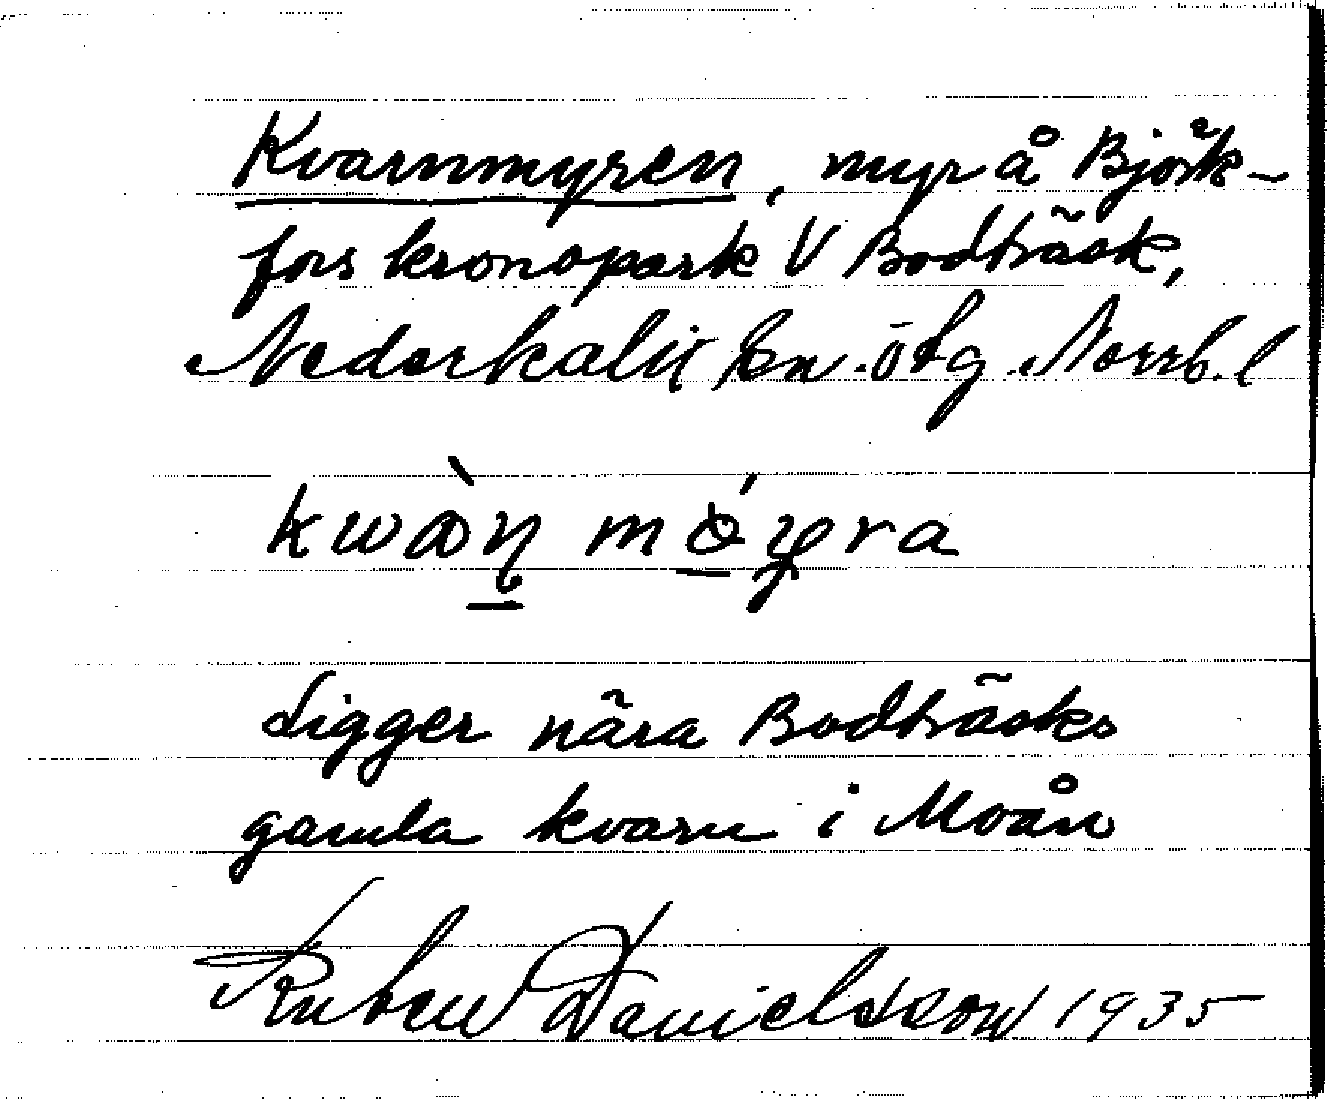 Kvarnmyren, myr å Björk-
fors kronopark V Bodträsk,
Nederkalix sn. ötg. Norrb. l
Ligger nära Bodträsks
gamla kvarn i Moån
Ruben Danielsson 1935